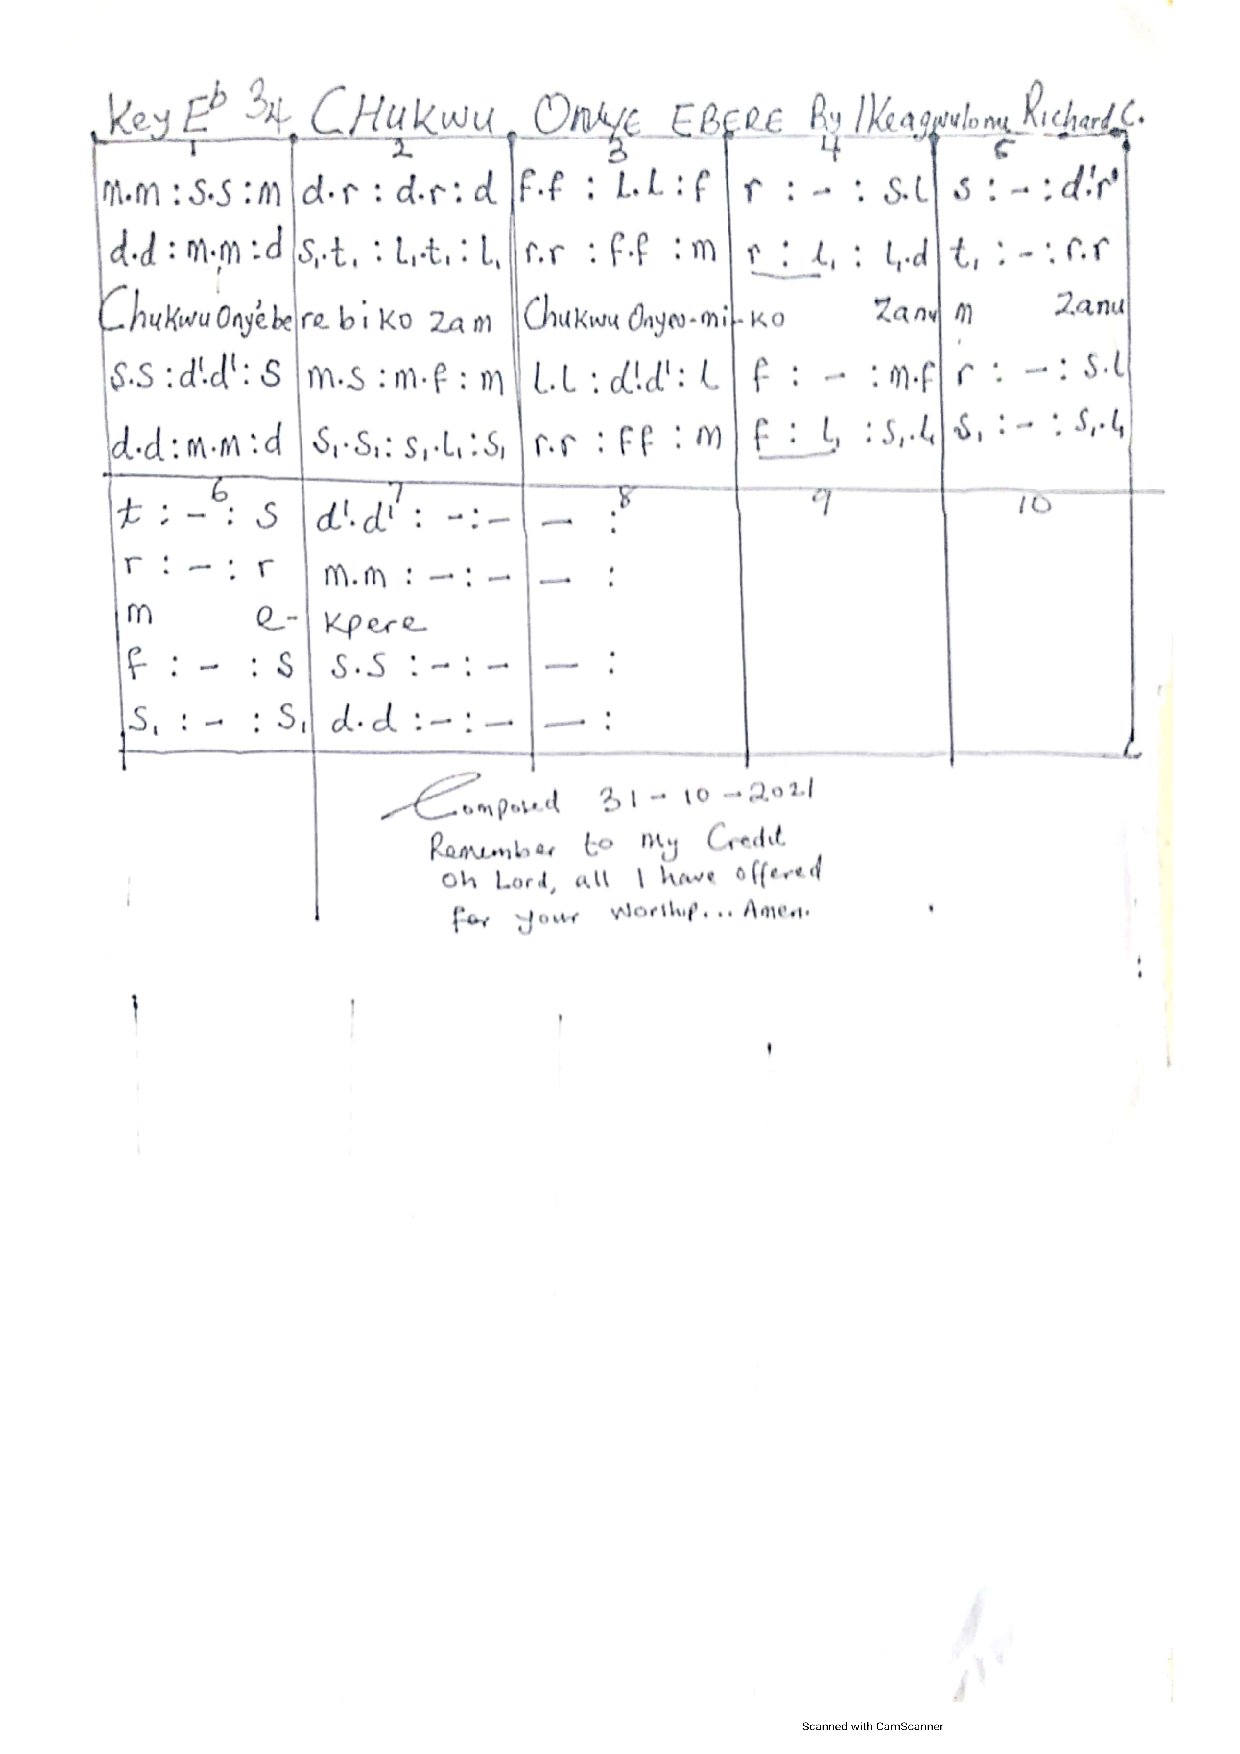 Key Eb 3/4 CHUKWU ONYE EBERE By Ikeagwulonu Richard C.
1 2 3 4 5
m.m : s.s : m | d.r : d.r : d | f.f : l.l : f | r : - : s.l | s : - : d'.r'
d.d : m.m : d | s₁.t₁ : l₁.t₁ : l₁ | r.r : f.f : m | r : l₁ : l₁.d | t₁ : - : r.r
Chukwu Onyébe re biko zam Chukwu Onyeo-mi-ko Zanu m Zanu
s.s : d'.d' : s | m.s : m.f : m | l.l : d'.d' : l | f : - : m.f | r : - : s.l
d.d : m.m : d | s₁.s₁ : s₁.l₁ : s₁ | r.r : f f : m | f : l₁ : s₁.l₁ | s₁ : - : s₁.l₁
6 7 8 9 10
t : - : s | d'.d' : - : - | - :
r : - : r | m.m : - : - | - :
m e- kpere
f : - : s | s.s : - : - | - :
s₁ : - : s₁ | d.d : - : - | - :
Composed 31-10-2021
Remember to my Credit
Oh Lord, all I have offered
for your worship... Amen.
Scanned with CamScanner